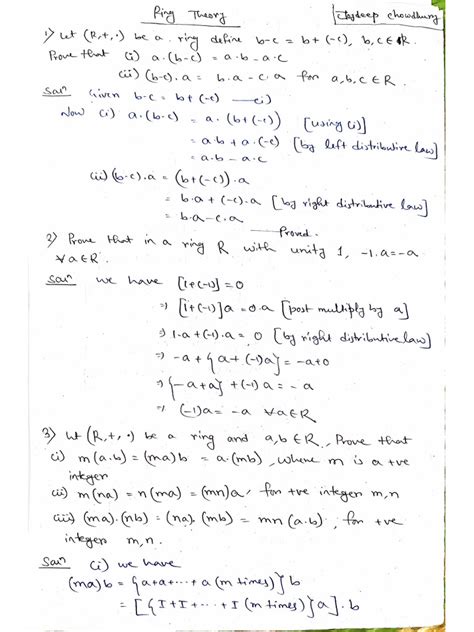 Ring Theory
Jaydeep Chowdhury
1) Let (R,+,·) be a ring define b-c = b+(-c), b,c∈R.
Prove that (i) a·(b-c) = a·b-a·c
(ii) (b-c)·a = b·a-c·a for a,b,c∈R
Soln Given b-c = b+(-c) —(i)
Now (i) a·(b-c) = a·(b+(-c)) [using (i)]
= a·b+a·(-c) [by left distributive law]
= a·b-a·c
(ii) (b-c)·a = (b+(-c))·a
= b·a+(-c)·a [by right distributive law]
= b·a-c·a
Proved.
2) Prove that in a ring R with unity 1, -1·a=-a
∀a∈R.
Soln we have [1+(-1)]=0
⇒ [1+(-1)]a=0·a [post multiply by a]
⇒ 1·a+(-1)·a=0 [by right distributive law]
⇒ -a+{a+(-1)a}=-a+0
⇒ {-a+a}+(-1)a=-a
⇒ (-1)a=-a ∀a∈R
3) Let (R,+,·) be a ring and a,b∈R, Prove that
(i) m(a·b)=(ma)b=a·(mb), where m is a +ve
integer
(ii) m(na)=n(ma)=(mn)a, for +ve integer m,n
(iii) (ma)·(nb)=(na)·(mb)=mn(a·b), for +ve
integer m,n.
Soln (i) we have
(ma)b={a+a+···+a(m times)}b
=[{I+I+···+I(m times)}a]·b